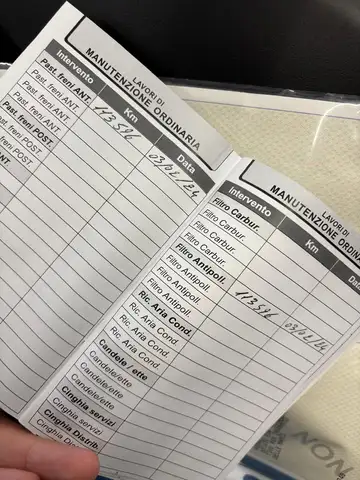 LAVORI DI
MANUTENZIONE ORDINARIA
Intervento Km Data
Past. freni ANT. 113586 03/02/24
Past. freni ANT.
Past. freni ANT.
Past. freni POST.
Past. freni POST.
Past. freni POST.
LAVORI DI
MANUTENZIONE ORDINA
Intervento Km Da
Filtro Carbur.
Filtro Carbur.
Filtro Carbur.
Filtro Antipoll. 113586 03/02/24
Filtro Antipoll.
Filtro Antipoll.
Ric. Aria Cond.
Ric. Aria Cond.
Ric. Aria Cond.
Candele / ette
Candele/ette
Candele/ette
Cinghia servizi
Cinghia servizi
Cinghia Distrib
Cinghia Dis
NON